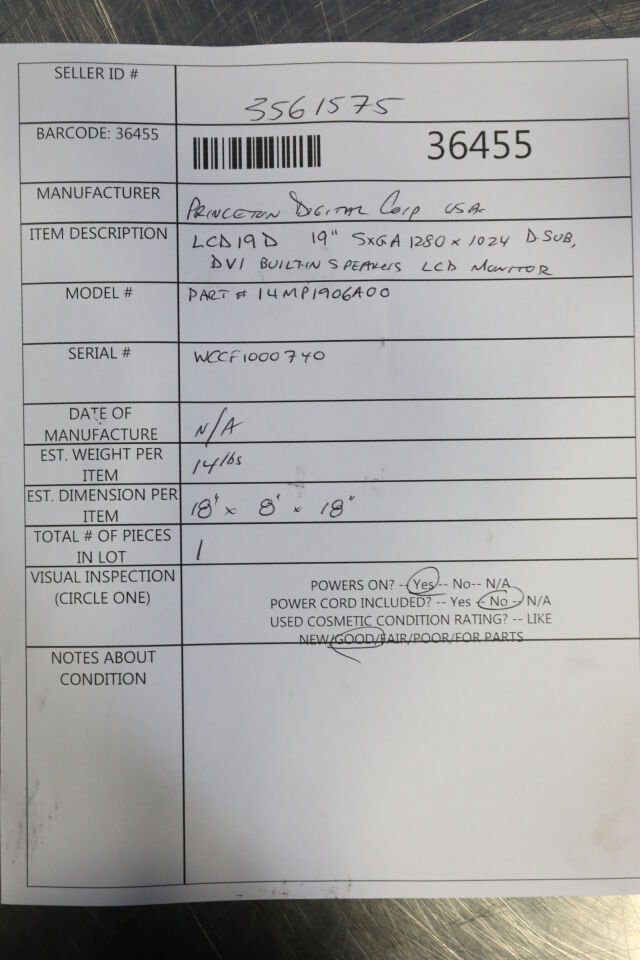 SELLER ID #
3561575
BARCODE: 36455
36455
MANUFACTURER
PRINCETON DIGITAL CORP USA
ITEM DESCRIPTION
LCD19D 19" SXGA 1280 x 1024 D-SUB,
DVI BUILT-IN SPEAKERS LCD MONITOR
MODEL #
PART # 14MP1906A00
SERIAL #
WCCF1000740
DATE OF
MANUFACTURE
N/A
EST. WEIGHT PER
ITEM
14 lbs
EST. DIMENSION PER
ITEM
18" x 8" x 18"
TOTAL # OF PIECES
IN LOT
1
VISUAL INSPECTION
(CIRCLE ONE)
POWERS ON? -- Yes -- No-- N/A
POWER CORD INCLUDED? -- Yes -- No -- N/A
USED COSMETIC CONDITION RATING? -- LIKE
NEW/GOOD/FAIR/POOR/FOR PARTS
NOTES ABOUT
CONDITION